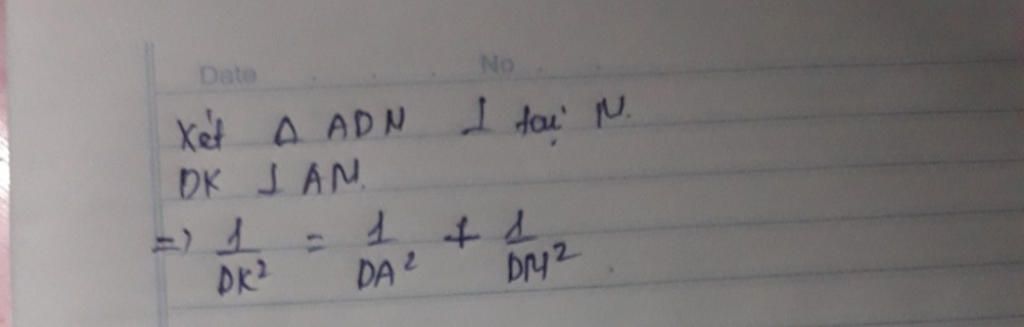 Date No
Xét Δ ADN ⊥ tại N.
DK ⊥ AN.
=> 1/DK² = 1/DA² + 1/DN²